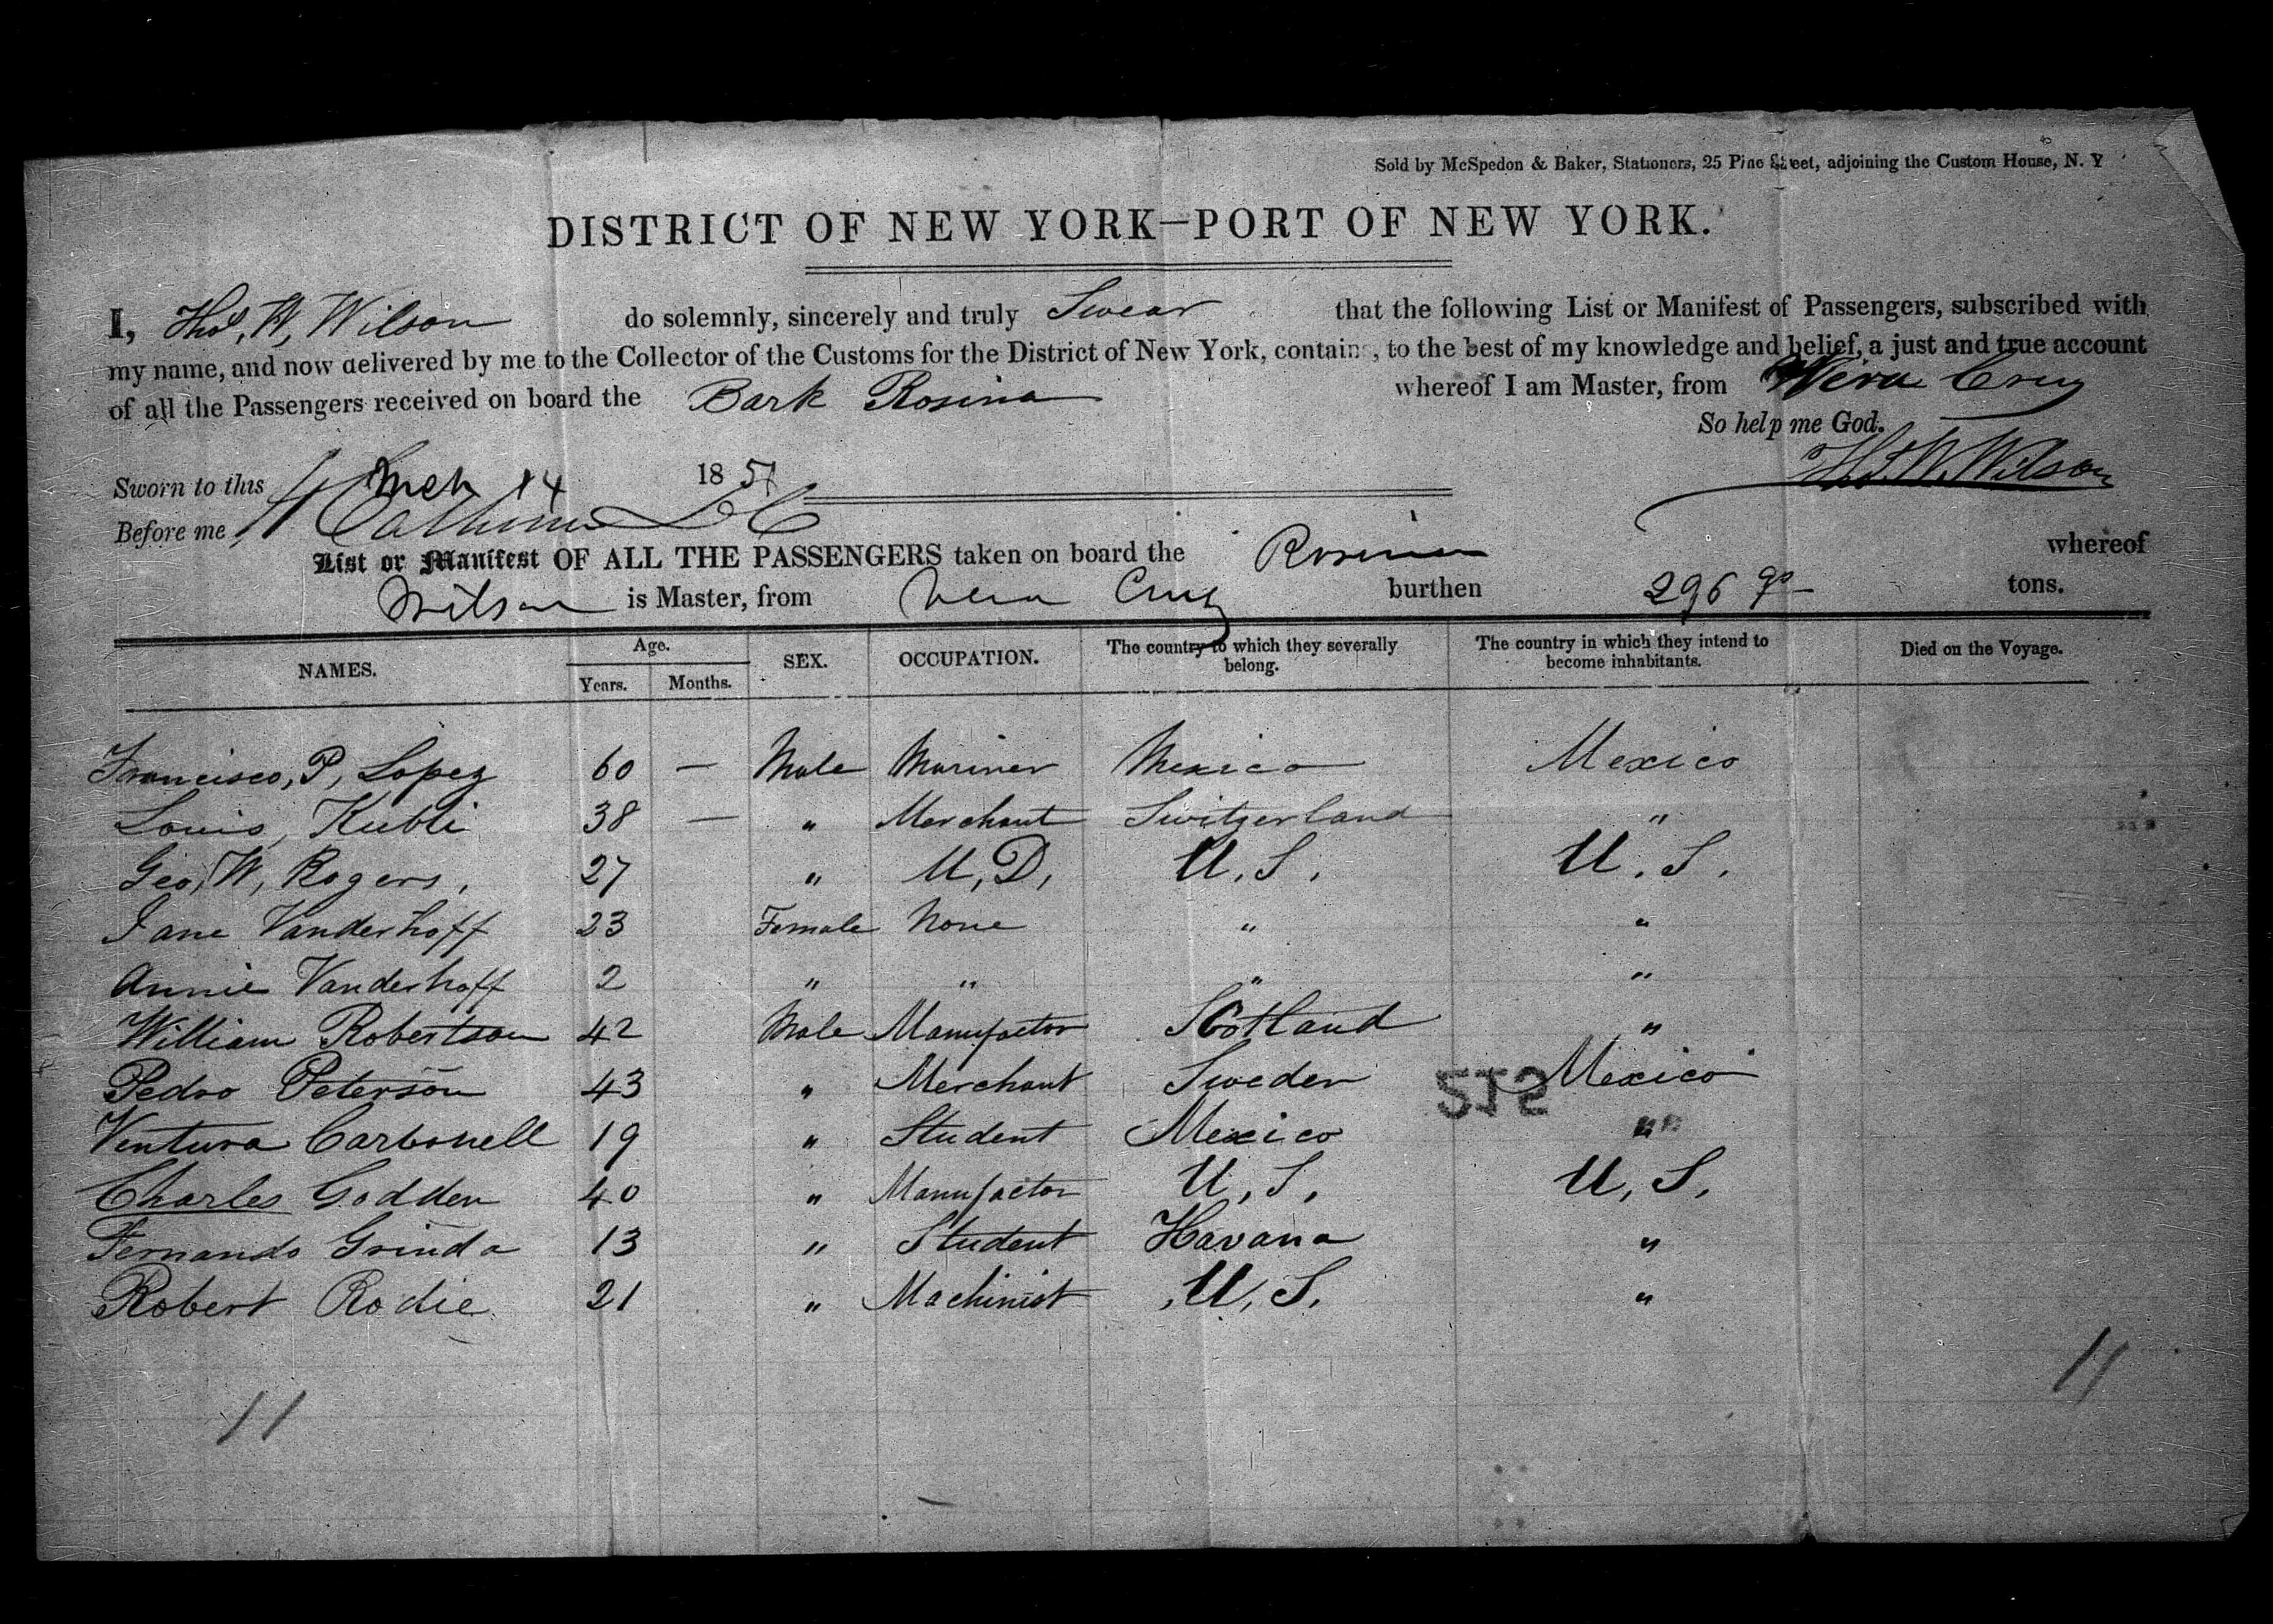 Sold by McSpedon & Baker, Stationers, 25 Pine Street, adjoining the Custom House, N. Y
DISTRICT OF NEW YORK—PORT OF NEW YORK.
I, Thos. W. Wilson do solemnly, sincerely and truly Swear that the following List or Manifest of Passengers, subscribed with
my name, and now delivered by me to the Collector of the Customs for the District of New York, contains, to the best of my knowledge and belief, a just and true account
of all the Passengers received on board the Bark Rosina whereof I am Master, from Vera Cruz
So help me God.
Sworn to this Mch 14 1851 Th. W. Wilson
Before me
List or Manifest OF ALL THE PASSENGERS taken on board the Rosina whereof
Wilson is Master, from Vera Cruz burthen 296 90 tons.
NAMES. Age. Years. Months. SEX. OCCUPATION. The country to which they severally belong. The country in which they intend to become inhabitants. Died on the Voyage.
Francisco, P, Lopez 60 — Male Mariner Mexico Mexico
Louis, Kubli 38 — " Merchant Switzerland "
Geo, W, Rogers, 27 " M, D, U. S. U. S.
Jane Vanderhoff 23 Female None " "
Annie Vanderhoff 2 " " " "
William Robertson 42 Male Manufactor Scotland "
Pedro Peterson 43 " Merchant Sweden Mexico
Ventura Carbonell 19 " Student Mexico "
Charles Godden 40 " Manufactor U, S, U, S,
Fernando Grinda 13 " Student Havana "
Robert Rodie 21 " Machinist U, S. "
11 11